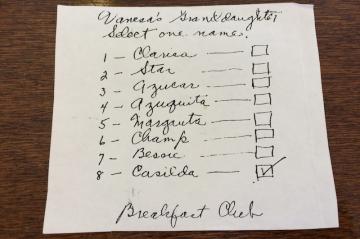 Vanesa's Granddaughter
Select one name.
1 - Clarisa
2 - Star
3 - Azucar
4 - Azuquita
5 - Margauta
6 - Champ
7 - Bessie
8 - Casilda
Breakfast Club